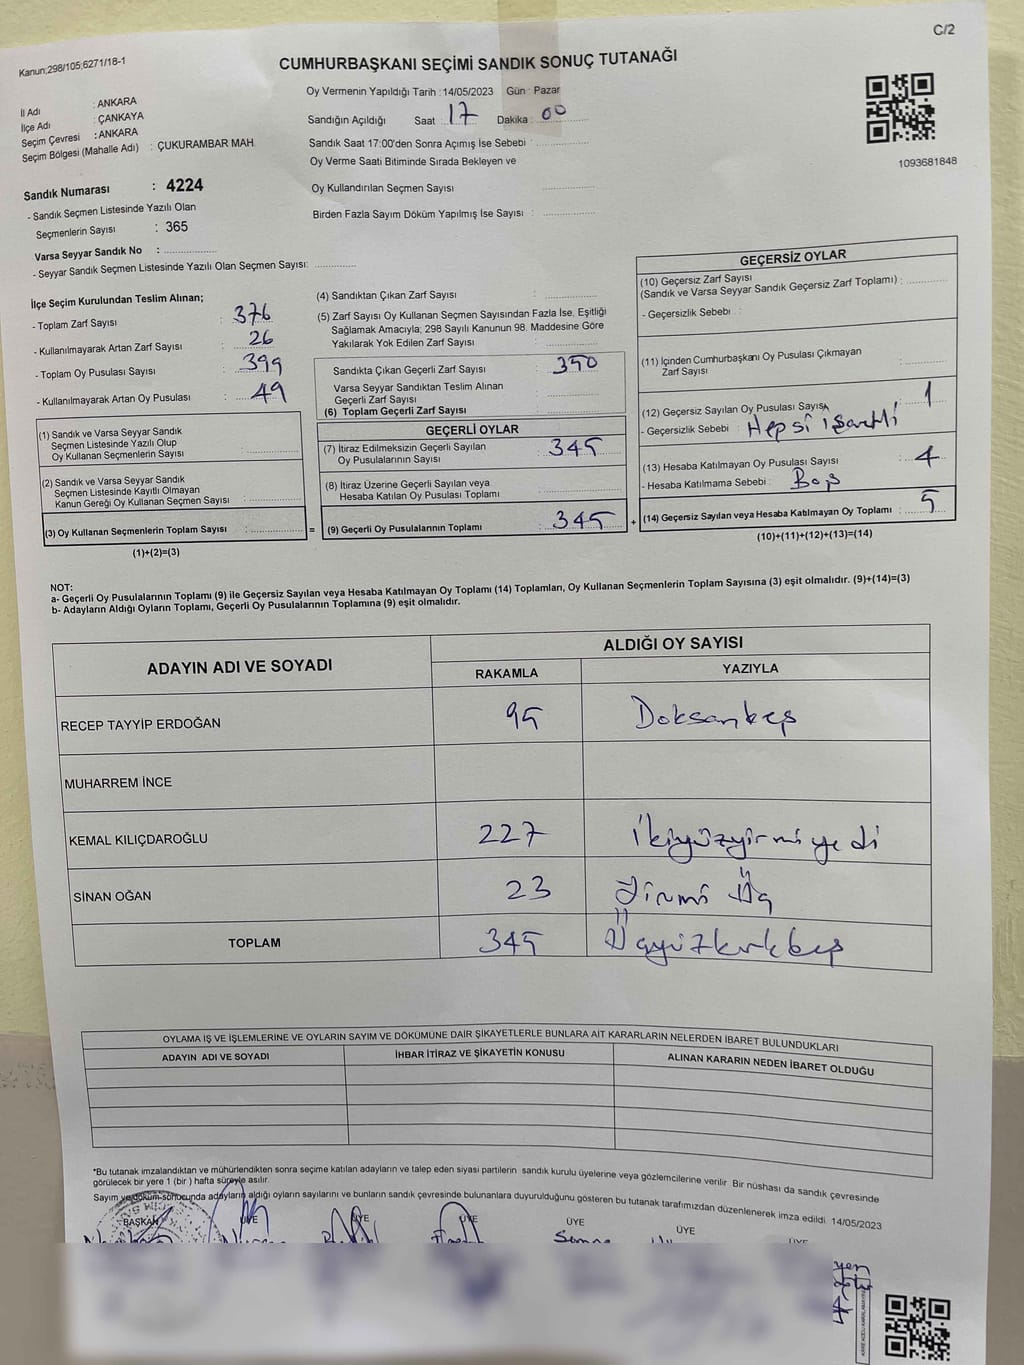 C/2
Kanun;298/105;6271/18-1
CUMHURBAŞKANI SEÇİMİ SANDIK SONUÇ TUTANAĞI
Oy Vermenin Yapıldığı Tarih : 14/05/2023 Gün : Pazar
İl Adı : ANKARA
İlçe Adı : ÇANKAYA
Seçim Çevresi : ANKARA
Seçim Bölgesi (Mahalle Adı) : ÇUKURAMBAR MAH.
Sandığın Açıldığı Saat 17 Dakika : 00
Sandık Saat 17:00'den Sonra Açımış İse Sebebi :
Oy Verme Saati Bitiminde Sırada Bekleyen ve
Oy Kullandırılan Seçmen Sayısı
Birden Fazla Sayım Döküm Yapılmış İse Sayısı :
1093681848
Sandık Numarası : 4224
- Sandık Seçmen Listesinde Yazılı Olan
Seçmenlerin Sayısı : 365
Varsa Seyyar Sandık No :
- Seyyar Sandık Seçmen Listesinde Yazılı Olan Seçmen Sayısı:
İlçe Seçim Kurulundan Teslim Alınan;
- Toplam Zarf Sayısı : 376
- Kullanılmayarak Artan Zarf Sayısı : 26
- Toplam Oy Pusulası Sayısı : 399
- Kullanılmayarak Artan Oy Pusulası : 49
(1) Sandık ve Varsa Seyyar Sandık
Seçmen Listesinde Yazılı Olup
Oy Kullanan Seçmenlerin Sayısı :
(2) Sandık ve Varsa Seyyar Sandık
Seçmen Listesinde Kayıtlı Olmayan
Kanun Gereği Oy Kullanan Seçmen Sayısı :
(3) Oy Kullanan Seçmenlerin Toplam Sayısı :
(1)+(2)=(3)
=
(4) Sandıktan Çıkan Zarf Sayısı :
(5) Zarf Sayısı Oy Kullanan Seçmen Sayısından Fazla İse, Eşitliği
Sağlamak Amacıyla; 298 Sayılı Kanunun 98. Maddesine Göre
Yakılarak Yok Edilen Zarf Sayısı :
Sandıkta Çıkan Geçerli Zarf Sayısı : 350
Varsa Seyyar Sandıktan Teslim Alınan
Geçerli Zarf Sayısı :
(6) Toplam Geçerli Zarf Sayısı :
GEÇERLİ OYLAR
(7) İtiraz Edilmeksizin Geçerli Sayılan
Oy Pusulalarının Sayısı : 345
(8) İtiraz Üzerine Geçerli Sayılan veya
Hesaba Katılan Oy Pusulası Toplamı :
(9) Geçerli Oy Pusulalarının Toplamı : 345
+
GEÇERSİZ OYLAR
(10) Geçersiz Zarf Sayısı
(Sandık ve Varsa Seyyar Sandık Geçersiz Zarf Toplamı) :
- Geçersizlik Sebebi :
(11) İçinden Cumhurbaşkanı Oy Pusulası Çıkmayan
Zarf Sayısı :
(12) Geçersiz Sayılan Oy Pusulası Sayısı : 1
- Geçersizlik Sebebi : Hepsi işaretli
(13) Hesaba Katılmayan Oy Pusulası Sayısı : 4
- Hesaba Katılmama Sebebi : Boş
(14) Geçersiz Sayılan veya Hesaba Katılmayan Oy Toplamı : 5
(10)+(11)+(12)+(13)=(14)
NOT:
a- Geçerli Oy Pusulalarının Toplamı (9) ile Geçersiz Sayılan veya Hesaba Katılmayan Oy Toplamı (14) Toplamları, Oy Kullanan Seçmenlerin Toplam Sayısına (3) eşit olmalıdır. (9)+(14)=(3)
b- Adayların Aldığı Oyların Toplamı, Geçerli Oy Pusulalarının Toplamına (9) eşit olmalıdır.
ADAYIN ADI VE SOYADI ALDIĞI OY SAYISI
RAKAMLA YAZIYLA
RECEP TAYYİP ERDOĞAN 95 Doksanbeş
MUHARREM İNCE
KEMAL KILIÇDAROĞLU 227 İkiyüzyirmiyedi
SİNAN OĞAN 23 Yirmi Üç
TOPLAM 345 Üçyüzkırkbeş
OYLAMA İŞ VE İŞLEMLERİNE VE OYLARIN SAYIM VE DÖKÜMÜNE DAİR ŞİKAYETLERLE BUNLARA AİT KARARLARIN NELERDEN İBARET BULUNDUKLARI
ADAYIN ADI VE SOYADI İHBAR İTİRAZ VE ŞİKAYETİN KONUSU ALINAN KARARIN NEDEN İBARET OLDUĞU
*Bu tutanak imzalandıktan ve mühürlendikten sonra seçime katılan adayların ve talep eden siyasi partilerin sandık kurulu üyelerine veya gözlemcilerine verilir Bir nüshası da sandık çevresinde
görülecek bir yere 1 (bir ) hafta süreyle asılır.
Sayım ve döküm sonucunda adayların aldığı oyların sayılarını ve bunların sandık çevresinde bulunanlara duyurulduğunu gösteren bu tutanak tarafımızdan düzenlenerek imza edildi. 14/05/2023
BAŞKAN ÜYE ÜYE ÜYE ÜYE ÜYE ÜYE